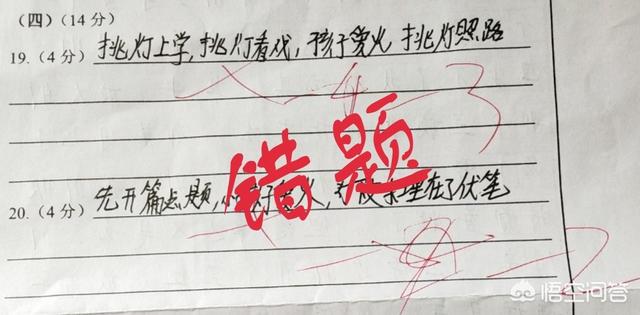 (四)(14分)
19.(4分) 挑灯上学,挑灯看戏,孩子爱火,挑灯照路
错题
20.(4分) 先开篇点题, 火, 埋在了伏笔
悟空问答